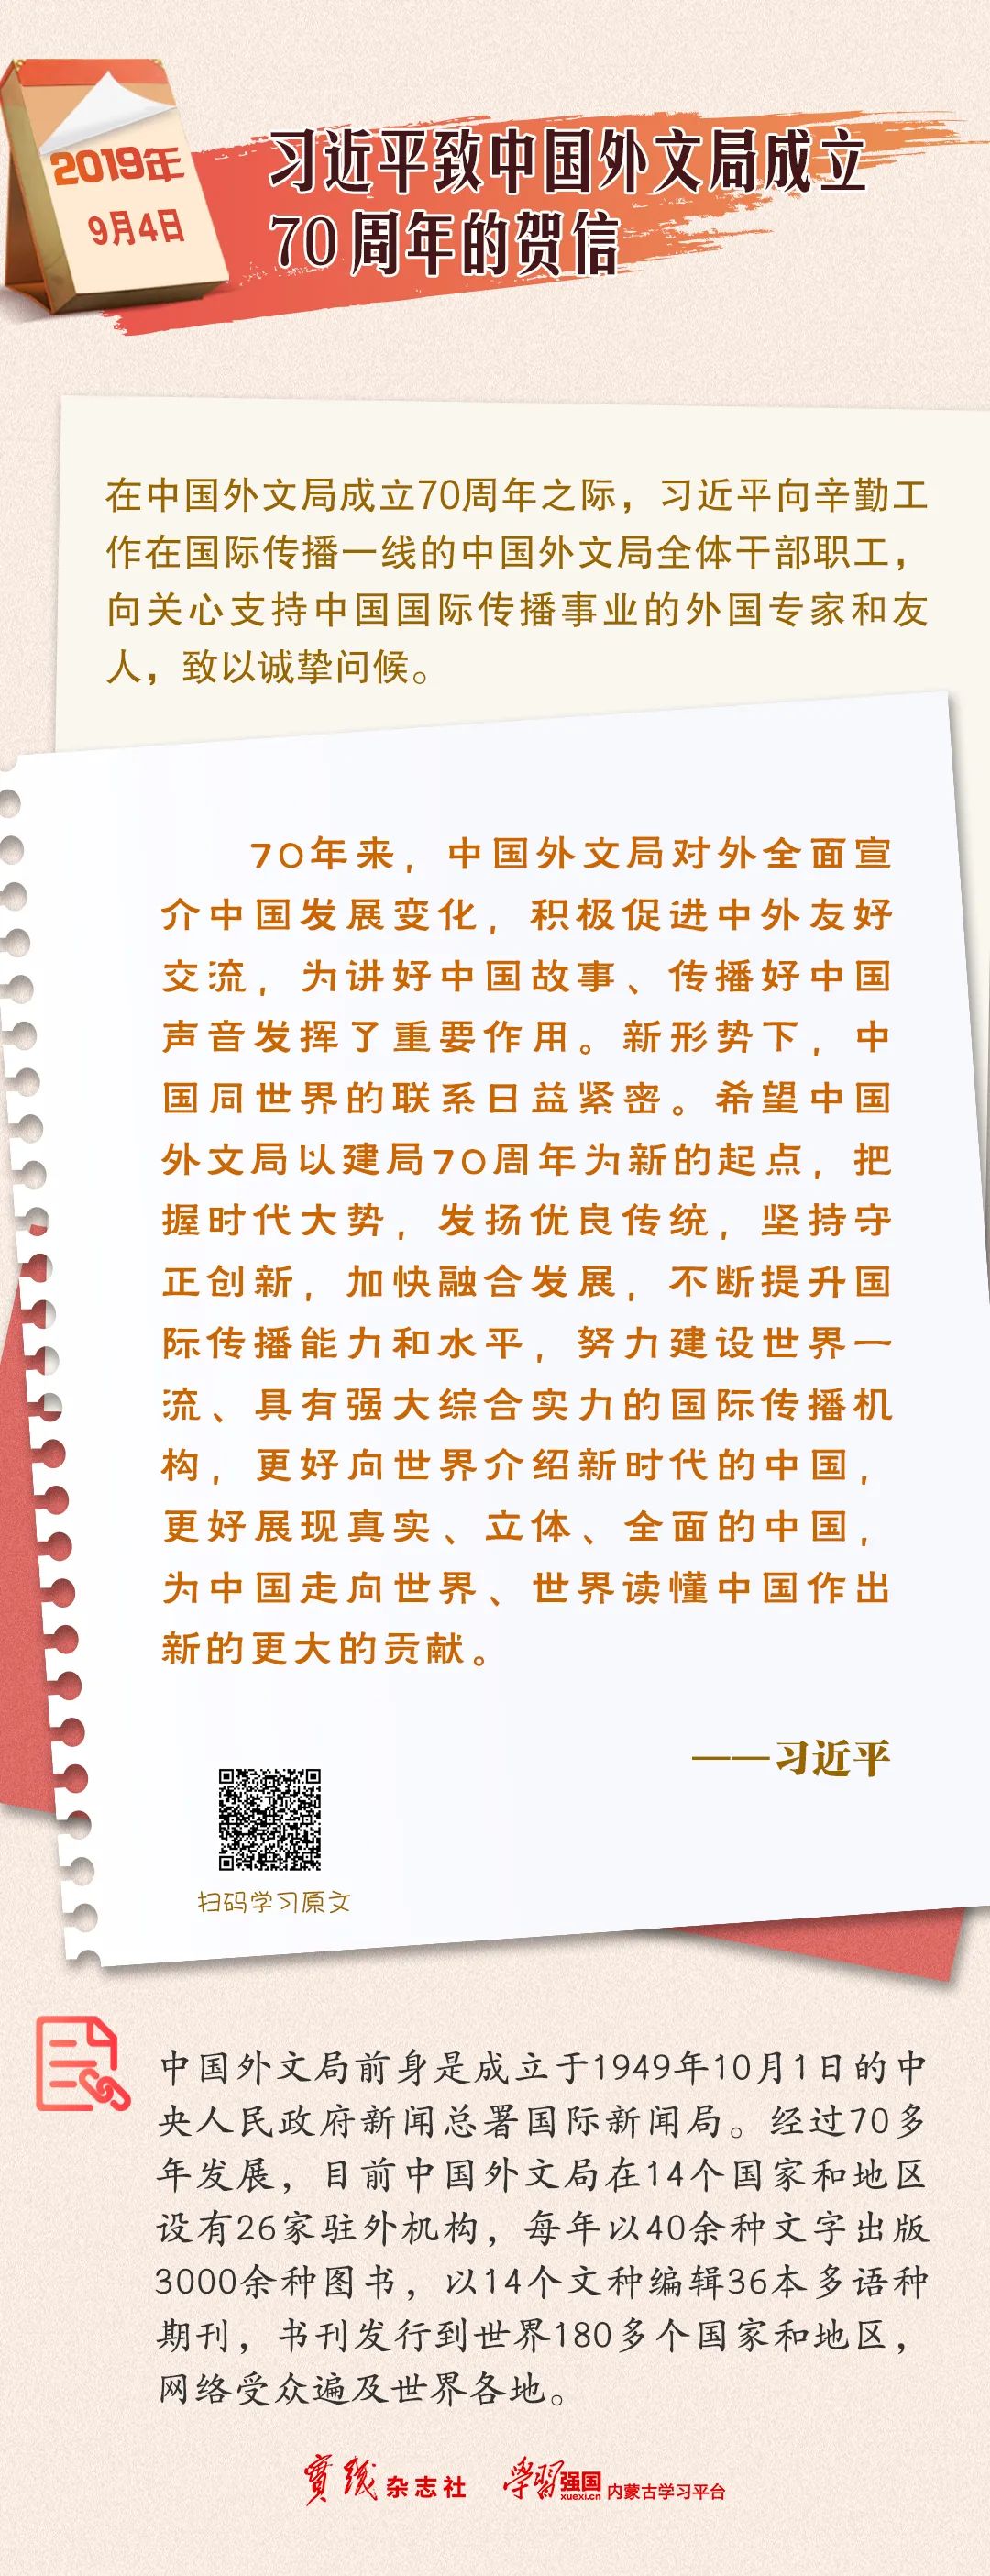 2019年
9月4日
习近平致中国外文局成立
70周年的贺信
在中国外文局成立70周年之际，习近平向辛勤工
作在国际传播一线的中国外文局全体干部职工，
向关心支持中国国际传播事业的外国专家和友
人，致以诚挚问候。
70年来，中国外文局对外全面宣
介中国发展变化，积极促进中外友好
交流，为讲好中国故事、传播好中国
声音发挥了重要作用。新形势下，中
国同世界的联系日益紧密。希望中国
外文局以建局70周年为新的起点，把
握时代大势，发扬优良传统，坚持守
正创新，加快融合发展，不断提升国
际传播能力和水平，努力建设世界一
流、具有强大综合实力的国际传播机
构，更好向世界介绍新时代的中国，
更好展现真实、立体、全面的中国，
为中国走向世界、世界读懂中国作出
新的更大的贡献。
——习近平
扫码学习原文
中国外文局前身是成立于1949年10月1日的中
央人民政府新闻总署国际新闻局。经过70多
年发展，目前中国外文局在14个国家和地区
设有26家驻外机构，每年以40余种文字出版
3000余种图书，以14个文种编辑36本多语种
期刊，书刊发行到世界180多个国家和地区，
网络受众遍及世界各地。
實践杂志社 學習强国 xuexi.cn 内蒙古学习平台